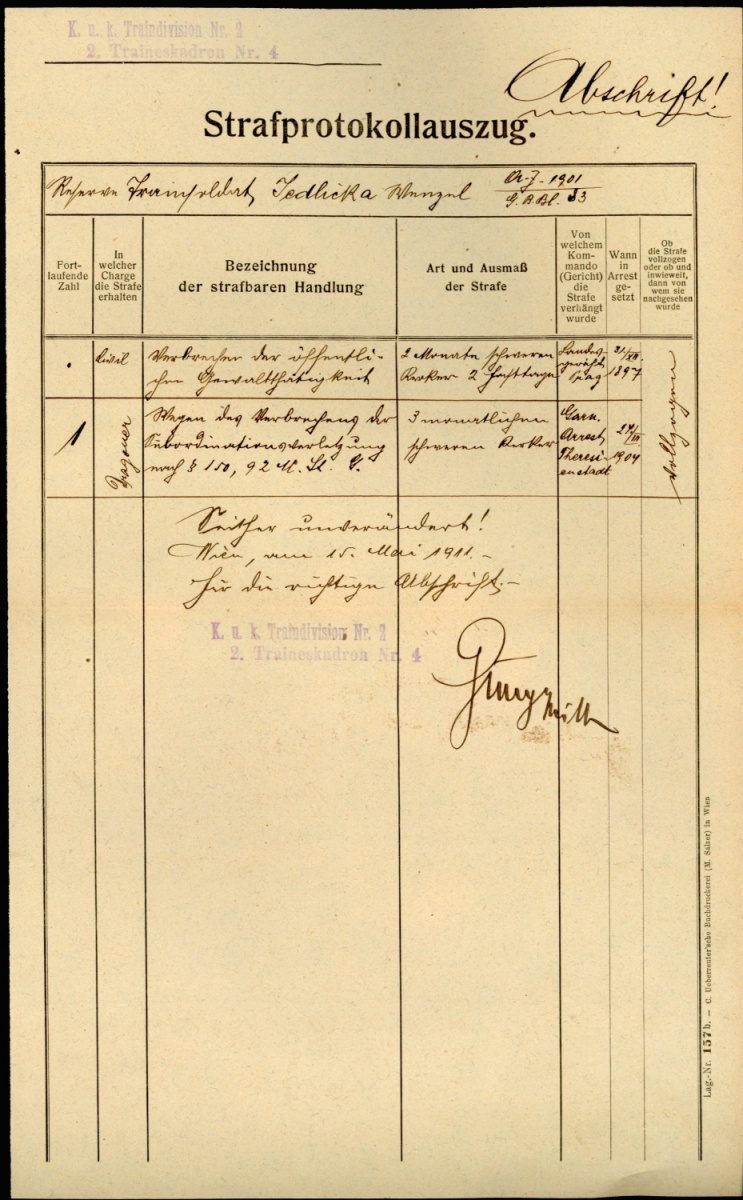 K. u. k. Traindivision Nr. 2
2. Traineskadron Nr. 4
Abschrift!
Strafprotokollauszug.
Reserve Trainsoldat, Jedlicka Wenzel A.J. 1901
G.B.Bl. 33
Fort-
laufende
Zahl
In
welcher
Charge
die Strafe
erhalten
Bezeichnung
der strafbaren Handlung
Art und Ausmaß
der Strafe
Von
welchem
Kom-
mando
(Gericht)
die
Strafe
verhängt
wurde
Wann
in
Arrest
ge-
setzt
Ob
die Strafe
vollzogen
oder ob und
inwieweit,
dann von
wem sie
nachgesehen
wurde
Civil
Verbrechen der öffentli-
chen Gewaltthätigkeit
2 Monate schweren
Kerker 2 Fasttage
Landes
gericht
Prag
31/XII
1897
1
Dragoner
Wegen des Verbrechens der
Subordinationsverletzung
nach § 150, 92 M. St. G.
3 monatlichen
schweren Kerker
Garn.
Arrest
Theresi-
enstadt
1904
vollzogen
Seither unverändert!
Wien, am 15. Mai 1911.-
Für die richtige Abschrift:-
K. u. k. Traindivision Nr. 2
2. Traineskadron Nr. 4
Lag.-Nr. 157b. — C. Ueberreuter'sche Buchdruckerei (M. Salzer) in Wien